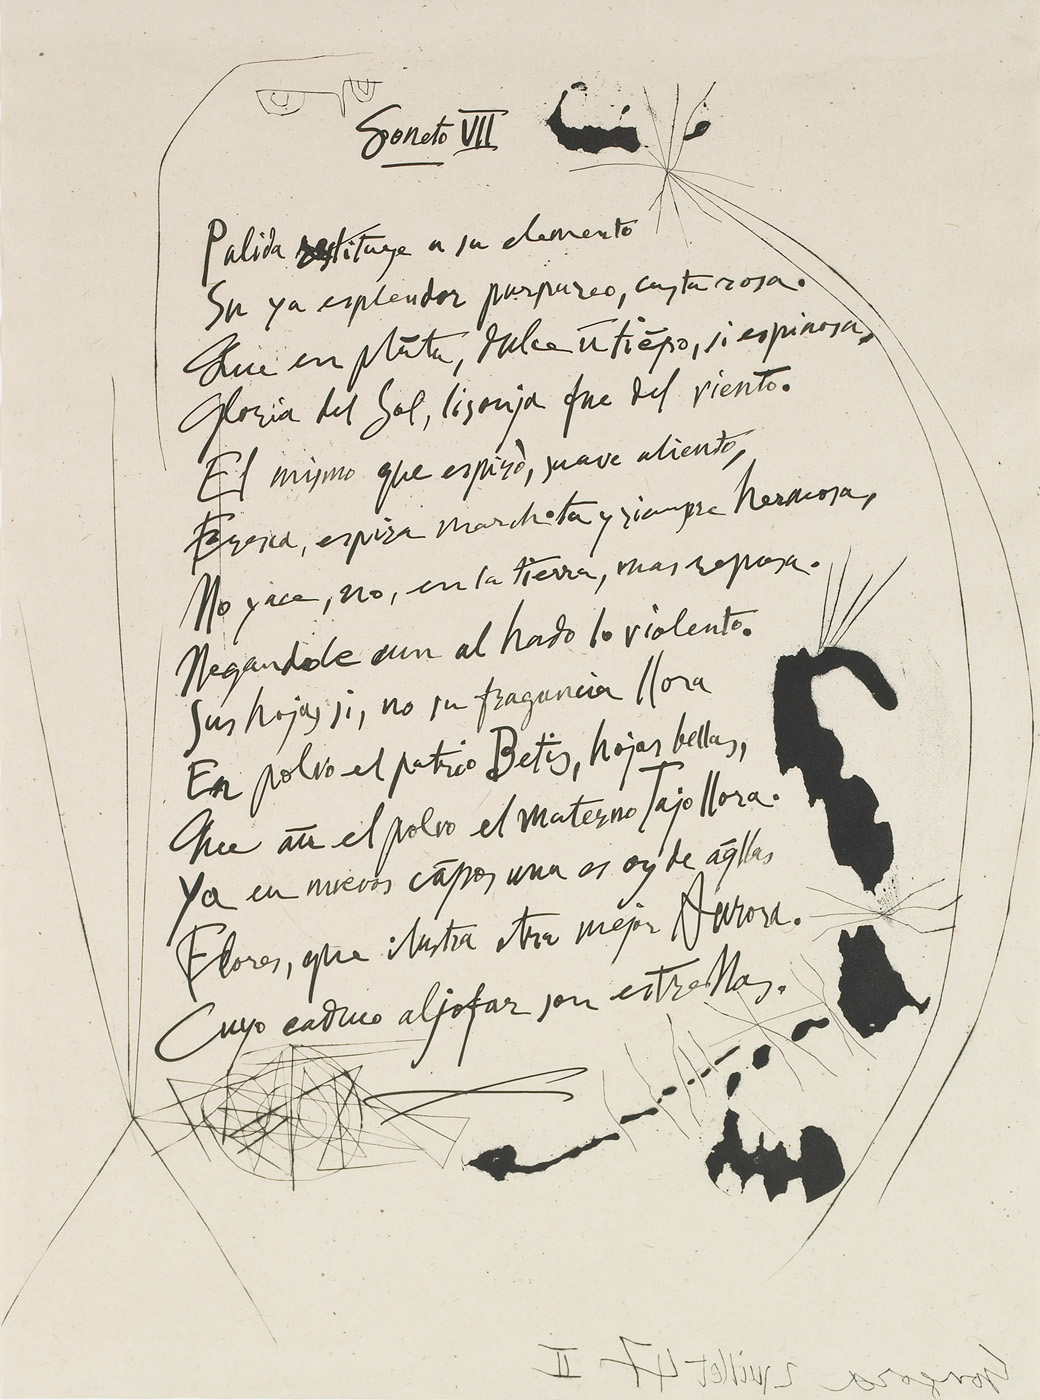 Soneto VII
Palida restituye a su elemento
Su ya esplendor purpureo, casta rosa.
Que en plāta, dulce ū tiēpo, si espinosa,
Gloria del Sol, lisonja fue del viento.
El mismo que espirò, suave aliento,
Fresca, espira marchita y siempre hermosa,
No yace, no, en la tierra, mas reposa.
Negandole aun al hado lo violento.
Sus hojas si, no su fragancia llora
En polvo el patrio Betis, hojas bellas,
Que aū el polvo el materno Tajo llora.
Ya en nuevos cāpos una es oy de aq̄llas
Flores, que ilustra otra mejor Aurora.
Cuyo caduco aljofar son estrellas.
Gongora Juillet 47 II